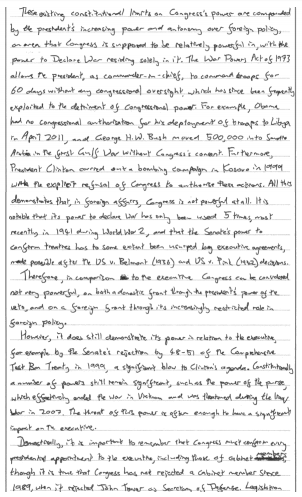 These existing constitutional limits on Congress's power are compounded
by the president's increasing power and autonomy over foreign policy,
an area that Congress is supposed to be relatively powerful in, with the
power to Declare War residing solely in it. The War Powers Act of 1973
allows the president, as commander-in-chief, to command troops for
60 days without any congressional oversight, which has since been frequently
exploited to the detriment of congressional power. For example, Obama
had no Congressional authorisation for his deployment of troops to Libya
in April 2011, and George H.W. Bush moved 500,000 into Saudi
Arabia in the first Gulf War without Congress's consent. Furthermore,
President Clinton carried out a bombing campaign in Kosovo in 1999
with the explicit refusal of Congress to authorise these actions. All this
demonstrates that, in foreign affairs, Congress is not powerful at all. It is
notable that its power to declare War has only been used 5 times, most
recently in 1941 during World War 2, and that the Senate's power to
confirm treaties has to some extent been usurped by executive agreements,
made possible after the US v. Belmont (1936) and US v. Pink (1942) decisions.
Therefore, in comparison to the executive Congress can be considered
not very powerful, on both a domestic front through the president's power of the
veto, and on a foreign front through its increasingly restricted role in
foreign policy.
However, it does still demonstrate its power in relation to the executive,
for example by the Senate's rejection by 48-51 of the Comprehensive
Test Ban Treaty in 1999, a significant blow to Clinton's agenda. Constitutionally
a number of powers still remain significant, such as the power of the purse,
which effectively ended the War in Vietnam and was threatened during the Iraq
War in 2007. The threat of this power is often enough to have a significant
impact on the executive.
Domestically, it is important to remember that Congress must confirm every
presidential appointment to the executive, including those of cabinet
though it is true that Congress has not rejected a cabinet member since
1989, when it rejected John Tower as Secretary of Defense. Legislation